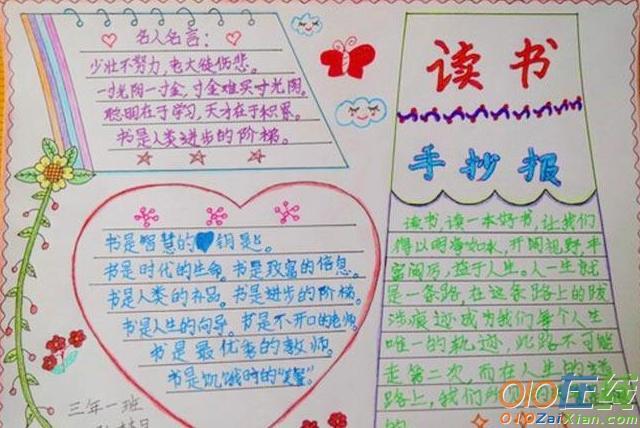 名人名言：
少壮不努力，老大徒伤悲。
一寸光阴一寸金，寸金难买寸光阴。
聪明在于学习，天才在于积累。
书是人类进步的阶梯。
读书
手抄报
书是智慧的钥匙。
书是时代的生命。书是致富的信息。
书是人类的补品。书是进步的阶梯。
书是人生的向导。书是不开口的老师。
书是最优秀的教师。
书是饥饿时的"美餐"。
三年一班
读书，读一本好书，让我们
得以明净如水，开阔视野，丰
富阅历，益于人生。人一生就
是一条路，在这条路上的跋
涉痕迹成为我们每个人生
唯一的轨迹，此路不可能
走第二次，而在人生的道
路上，我们所见的
的
OlO在线
OlOZaiXian.com